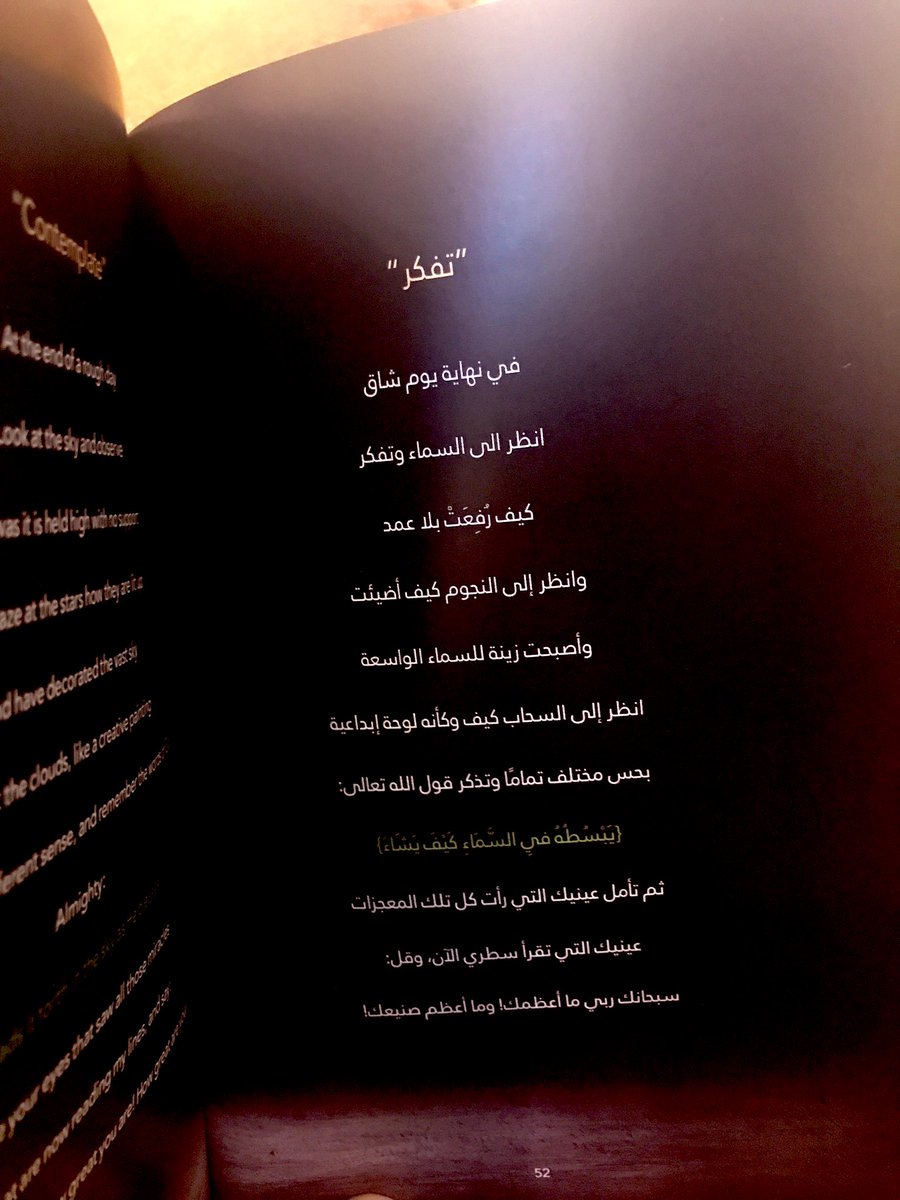 "Contemplate"
At the end of a rough day
Look at the sky and observe
was it is held high with no support
at the stars how they are lit up
have decorated the vast sky
the clouds, like a creative painting
sense, and remember the
Almighty:
your eyes that saw all those miracles
are now reading my lines, and say:
great you are! How great
"تفكر"
في نهاية يوم شاق
انظر الى السماء وتفكر
كيف رُفِعَتْ بلا عمد
وانظر إلى النجوم كيف أضيئت
وأصبحت زينة للسماء الواسعة
انظر إلى السحاب كيف وكأنه لوحة إبداعية
بحس مختلف تمامًا وتذكر قول الله تعالى:
{يَبْسُطُهُ فِي السَّمَاءِ كَيْفَ يَشَاءَ}
ثم تأمل عينيك التي رأت كل تلك المعجزات
عينيك التي تقرأ سطري الآن، وقل:
سبحانك ربي ما أعظمك! وما أعظم صنيعك!
52